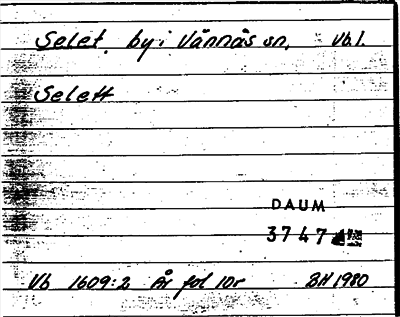 Selet, by i Vännäs sn. Vb.l.
Selett
DAUM
3747
Vb 1609:2 År fol 10r BH 1980